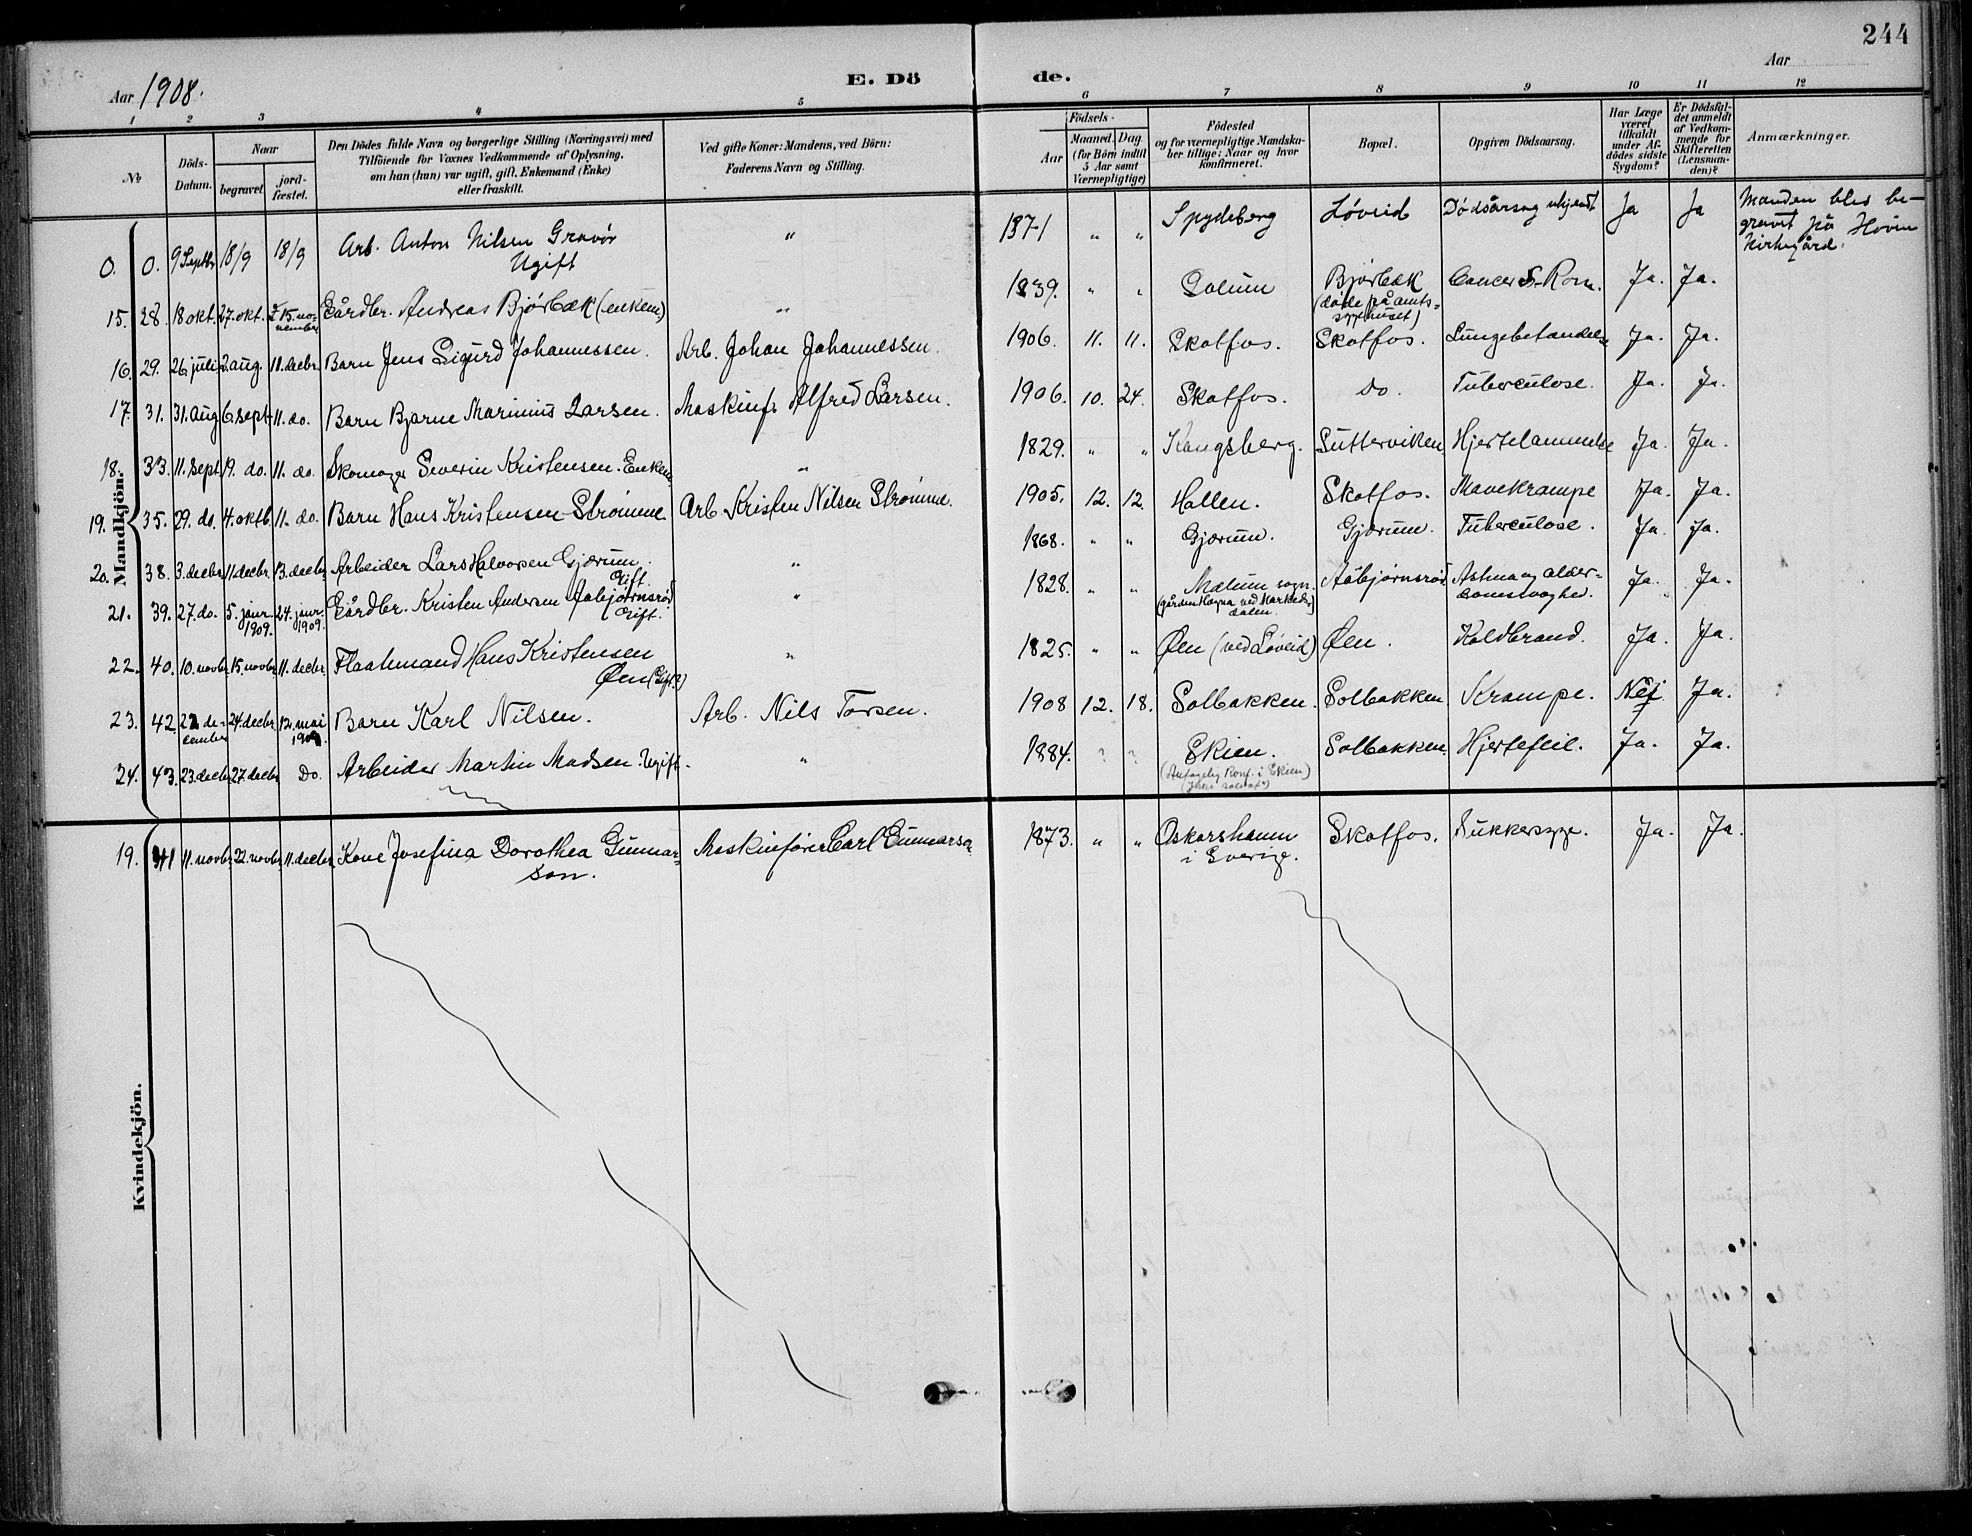 244
Aar 1908.
E. Dö de.
Aar
1 2 3 4 5 6 7 8 9 10 11 12
№
Döds-
Datum.
Naar
begravet
jord-
fæstet.
Den Dödes fulde Navn og borgerlige Stilling (Næringsvei) med
Tilföiende for Voxnes Vedkommende af Oplysning,
om han (hun) var ugift, gift, Enkemand (Enke)
eller fraskilt.
Ved gifte Koner: Mandens, ved Börn:
Faderens Navn og Stilling.
Födsels-
Aar
Maaned. Dag.
(for Börn indtil
5 Aar samt
Værnepligtige)
Födested
og for værnepligtige Mandska-
ber tillige: Naar og hvor
konfirmeret.
Bopæl.
Opgiven Dödsaarsag.
Har Læge
været
tilkaldt
under Af-
dödes sidste
Sygdom?
Er Dödsfal-
det anmeldt
af Vedkom-
mende for
Skifteretten
(Lensman-
den)?
Anmærkninger.
Mandkjön.
0. 0. 9 Septbr 18/9 18/9 Arb. Anton Nilsen Gravør " 1871 " " Spydeberg Løveid Dødsårsag ukjendt Ja Ja Manden blev be-
Ugift
gravet på Hovin
Kirkegård.
15. 28. 18 okt. 27. okt. 15. no-
vember
Gårdbr. Andreas Bjørbæk (enkem) " 1839. " " Solum Bjørbæk Cancer Ja. Ja.
(døde på amts-
sygehuset)
16. 29. 26 juli 2. aug. 11. decbr. Barn Jens Sigurd Johannessen. Arb. Johan Johannessen. 1906. 11. 11. Skotfos. Skotfos. Lungebetændelse Ja. Ja.
17. 31. 31. aug 6. sept. 11. do. Barn Bjarne Marinius Larsen. Maskinf. Alfred Larsen. 1906. 10. 24. Skotfos. Do. Tuberculose. Ja. Ja.
18. 33. 11. Sept. 19. do. 11. do. Skomager Severin Kristensen. Enkem " 1829. " " Kongsberg. Sutterviken Hjertelammelse Ja. Ja.
19. 35. 29. do. 4. oktb. 11. do. Barn Hans Kristensen Strømme Arb. Kristen Nilsen Strømme. 1905. 12. 12. Hallen. Skotfos. Mavekrampe Ja. Ja.
20. 38. 3. decbr. 11. decbr. 13. decbr. Arbeider Lars Halvorsen Gjærum. " 1868. " " Gjærum. Gjærum. Tuberculose. Ja. Ja.
Gift.
21. 39. 27. do. 5. janr. 24. janr. Gårdbr. Kristen Andersen Aabjørnsrød " 1828. " " Mælum sogn. Aabjørnsrød Astma og alder- Ja. Ja.
1909. 1909. Gift. (gården Høgna ved Kar
dalen. domssvaghed.
22. 40. 10. novbr. 15. novbr. 11. decbr. Flaatmand Hans Kristensen " 1825. " " Øen (ved Løveid) Øen. Koldbrand. Ja. Ja.
Øen (Gift?)
23. 42. 22 de- 24. decbr. 12. mai Barn Karl Nilsen. Arb. Nils Torsen. 1908 12. 18. Solbakken. Solbakken Krampe. Nei Ja.
cember 1909.
24. 43. 23. decbr. 27. decbr. Do. Arbeider Martin Madsen. Ugift. " 1884. " " Skien. Solbakken. Hjertefeil. Ja. Ja.
(Antagelig konf. i Skien)
Kvindekjön.
19. 41 11. novbr. 22. novbr. 11. decbr. Kone Josefina Dorothea Gunnar- Maskinfører Carl Gunnarson 1873. " " Oskarshamn Skotfos. Sukkersyge. Ja. Ja.
son. i Sverige.